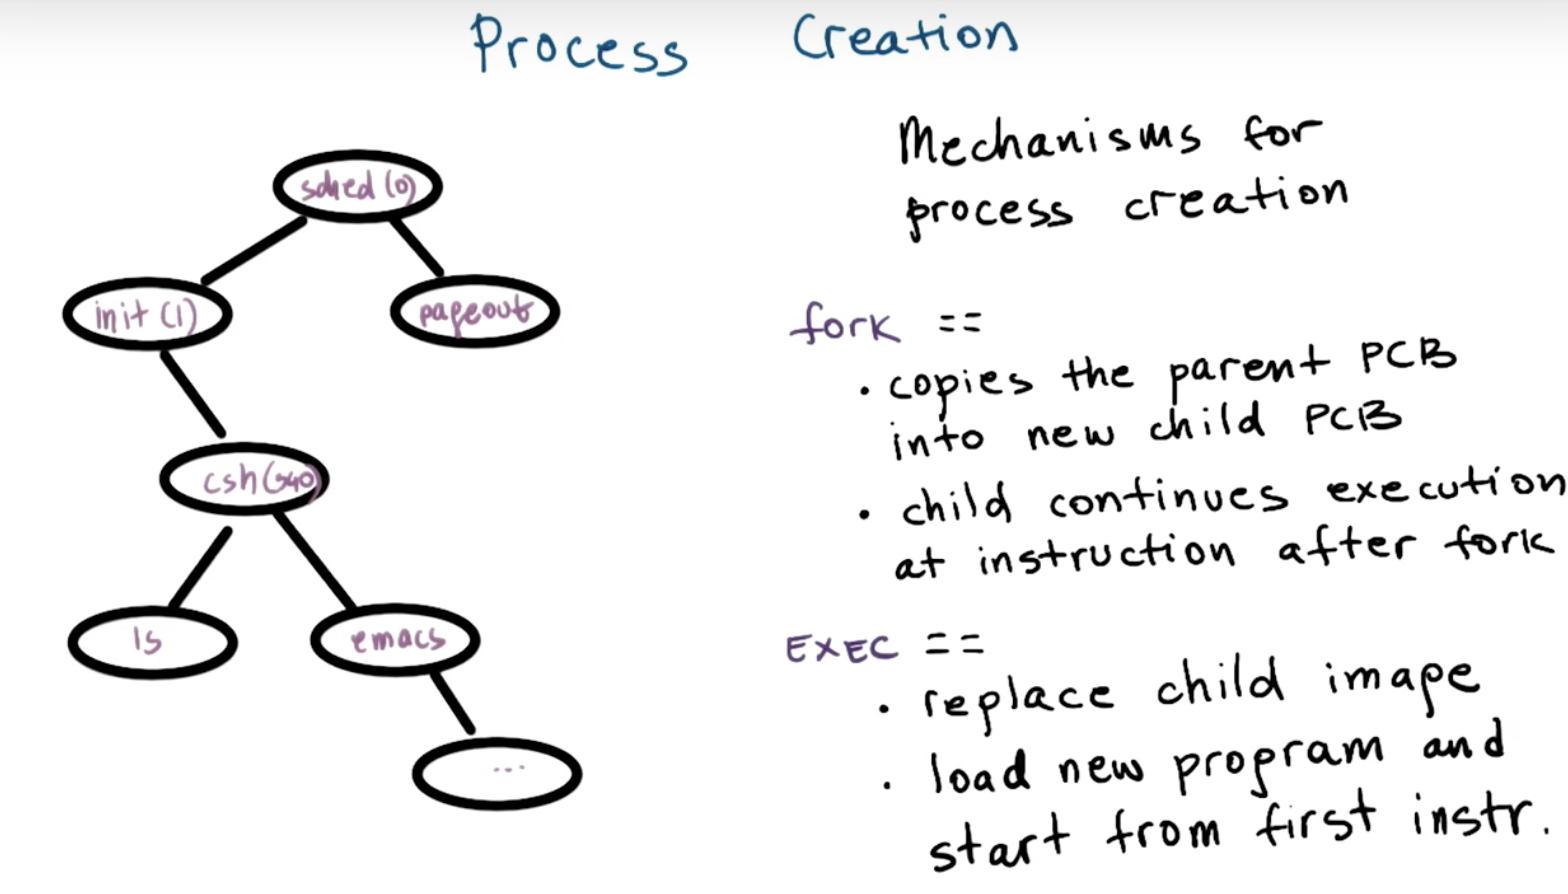 Process Creation
sched (0)
init (1)
pageout
csh(340)
ls
emacs
...
Mechanisms for
process creation
fork ==
• copies the parent PCB
into new child PCB
• child continues execution
at instruction after fork
EXEC ==
• replace child image
• load new program and
start from first instr.